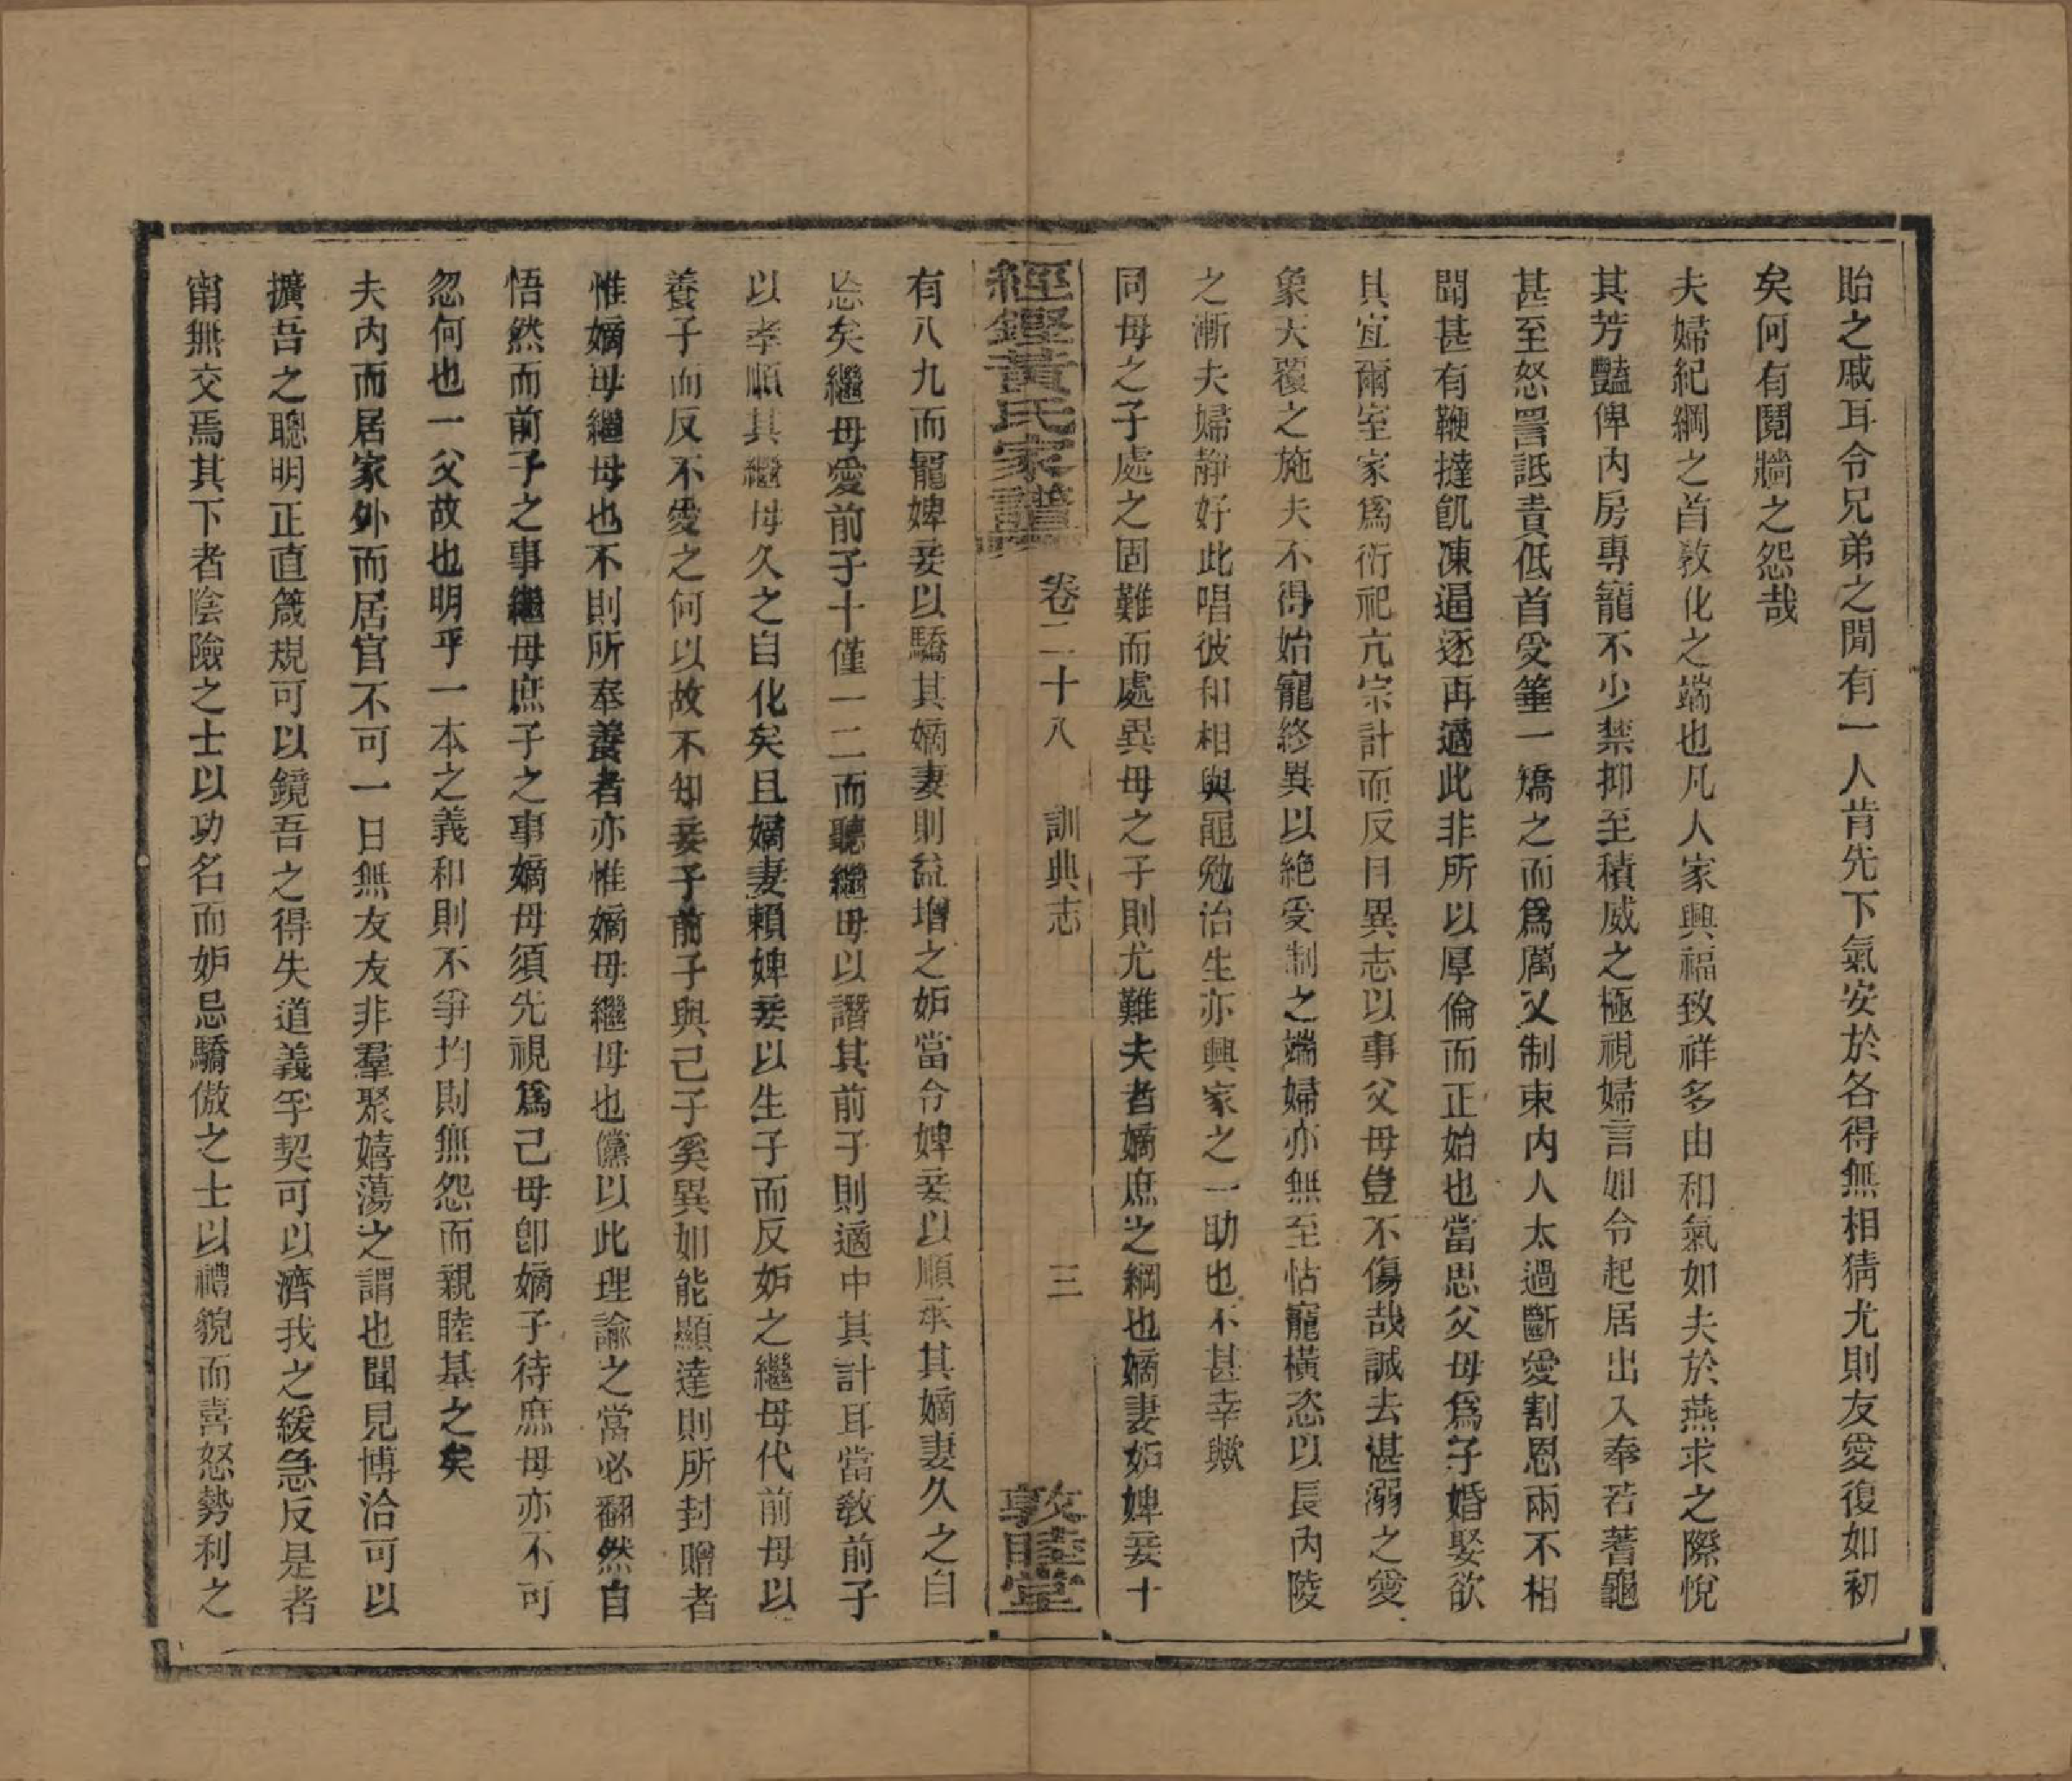 貽之戚耳令兄弟之閒有一人肯先下氣安於各得無相猜尤則友愛復如初
矣何有鬩牆之怨哉
夫婦紀綱之首敎化之端也凡人家興福致祥多由和氣如夫於燕求之際悅
其芳豔俾內房專寵不少禁抑至積威之極視婦言如令起居出入奉若蓍龜
甚至怒詈詆責低首受箠一矯之而爲厲父制束內人太過斷愛割恩兩不相
聞甚有鞭撻飢凍逼逐再適此非所以厚倫而正始也當思父母爲子婚娶欲
其宜爾室家爲衍祀亢宗計而反目異志以事父母豈不傷哉誠去湛溺之愛
象天覆之施夫不得始寵終異以絶受制之端婦亦無至怙寵橫恣以長內陵
之漸夫婦靜好此唱彼和相與黽勉治生亦興家之一助也不甚幸歟
同母之子處之固難而處異母之子則尤難夫者嫡庶之綱也嫡妻妬婢妾十
經鏗黃氏家譜 卷二十八 訓典志 三 敦睦堂
有八九而寵婢妾以驕其嫡妻則益增之妬當令婢妾以順承其嫡妻久之自
忘矣繼母愛前子十僅一二而聽繼母以譖其前子則適中其計耳當敎前子
以孝順其繼母久之自化矣且嫡妻賴婢妾以生子而反妬之繼母代前母以
養子而反不愛之何以故不知妾子前子與己子奚異如能顯達則所封贈者
惟嫡母繼母也不則所奉養者亦惟嫡母繼母也儻以此理諭之當必翻然自
悟然而前子之事繼母庶子之事嫡母須先視爲己母卽嫡子待庶母亦不可
忽何也一父故也明乎一本之義和則不爭均則無怨而親睦基之矣
夫內而居家外而居官不可一日無友友非羣聚嬉蕩之謂也聞見博洽可以
擴吾之聰明正直箴規可以鏡吾之得失道義孚契可以濟我之緩急反是者
甯無交焉其下者陰險之士以功名而妒忌驕傲之士以禮貌而喜怒勢利之